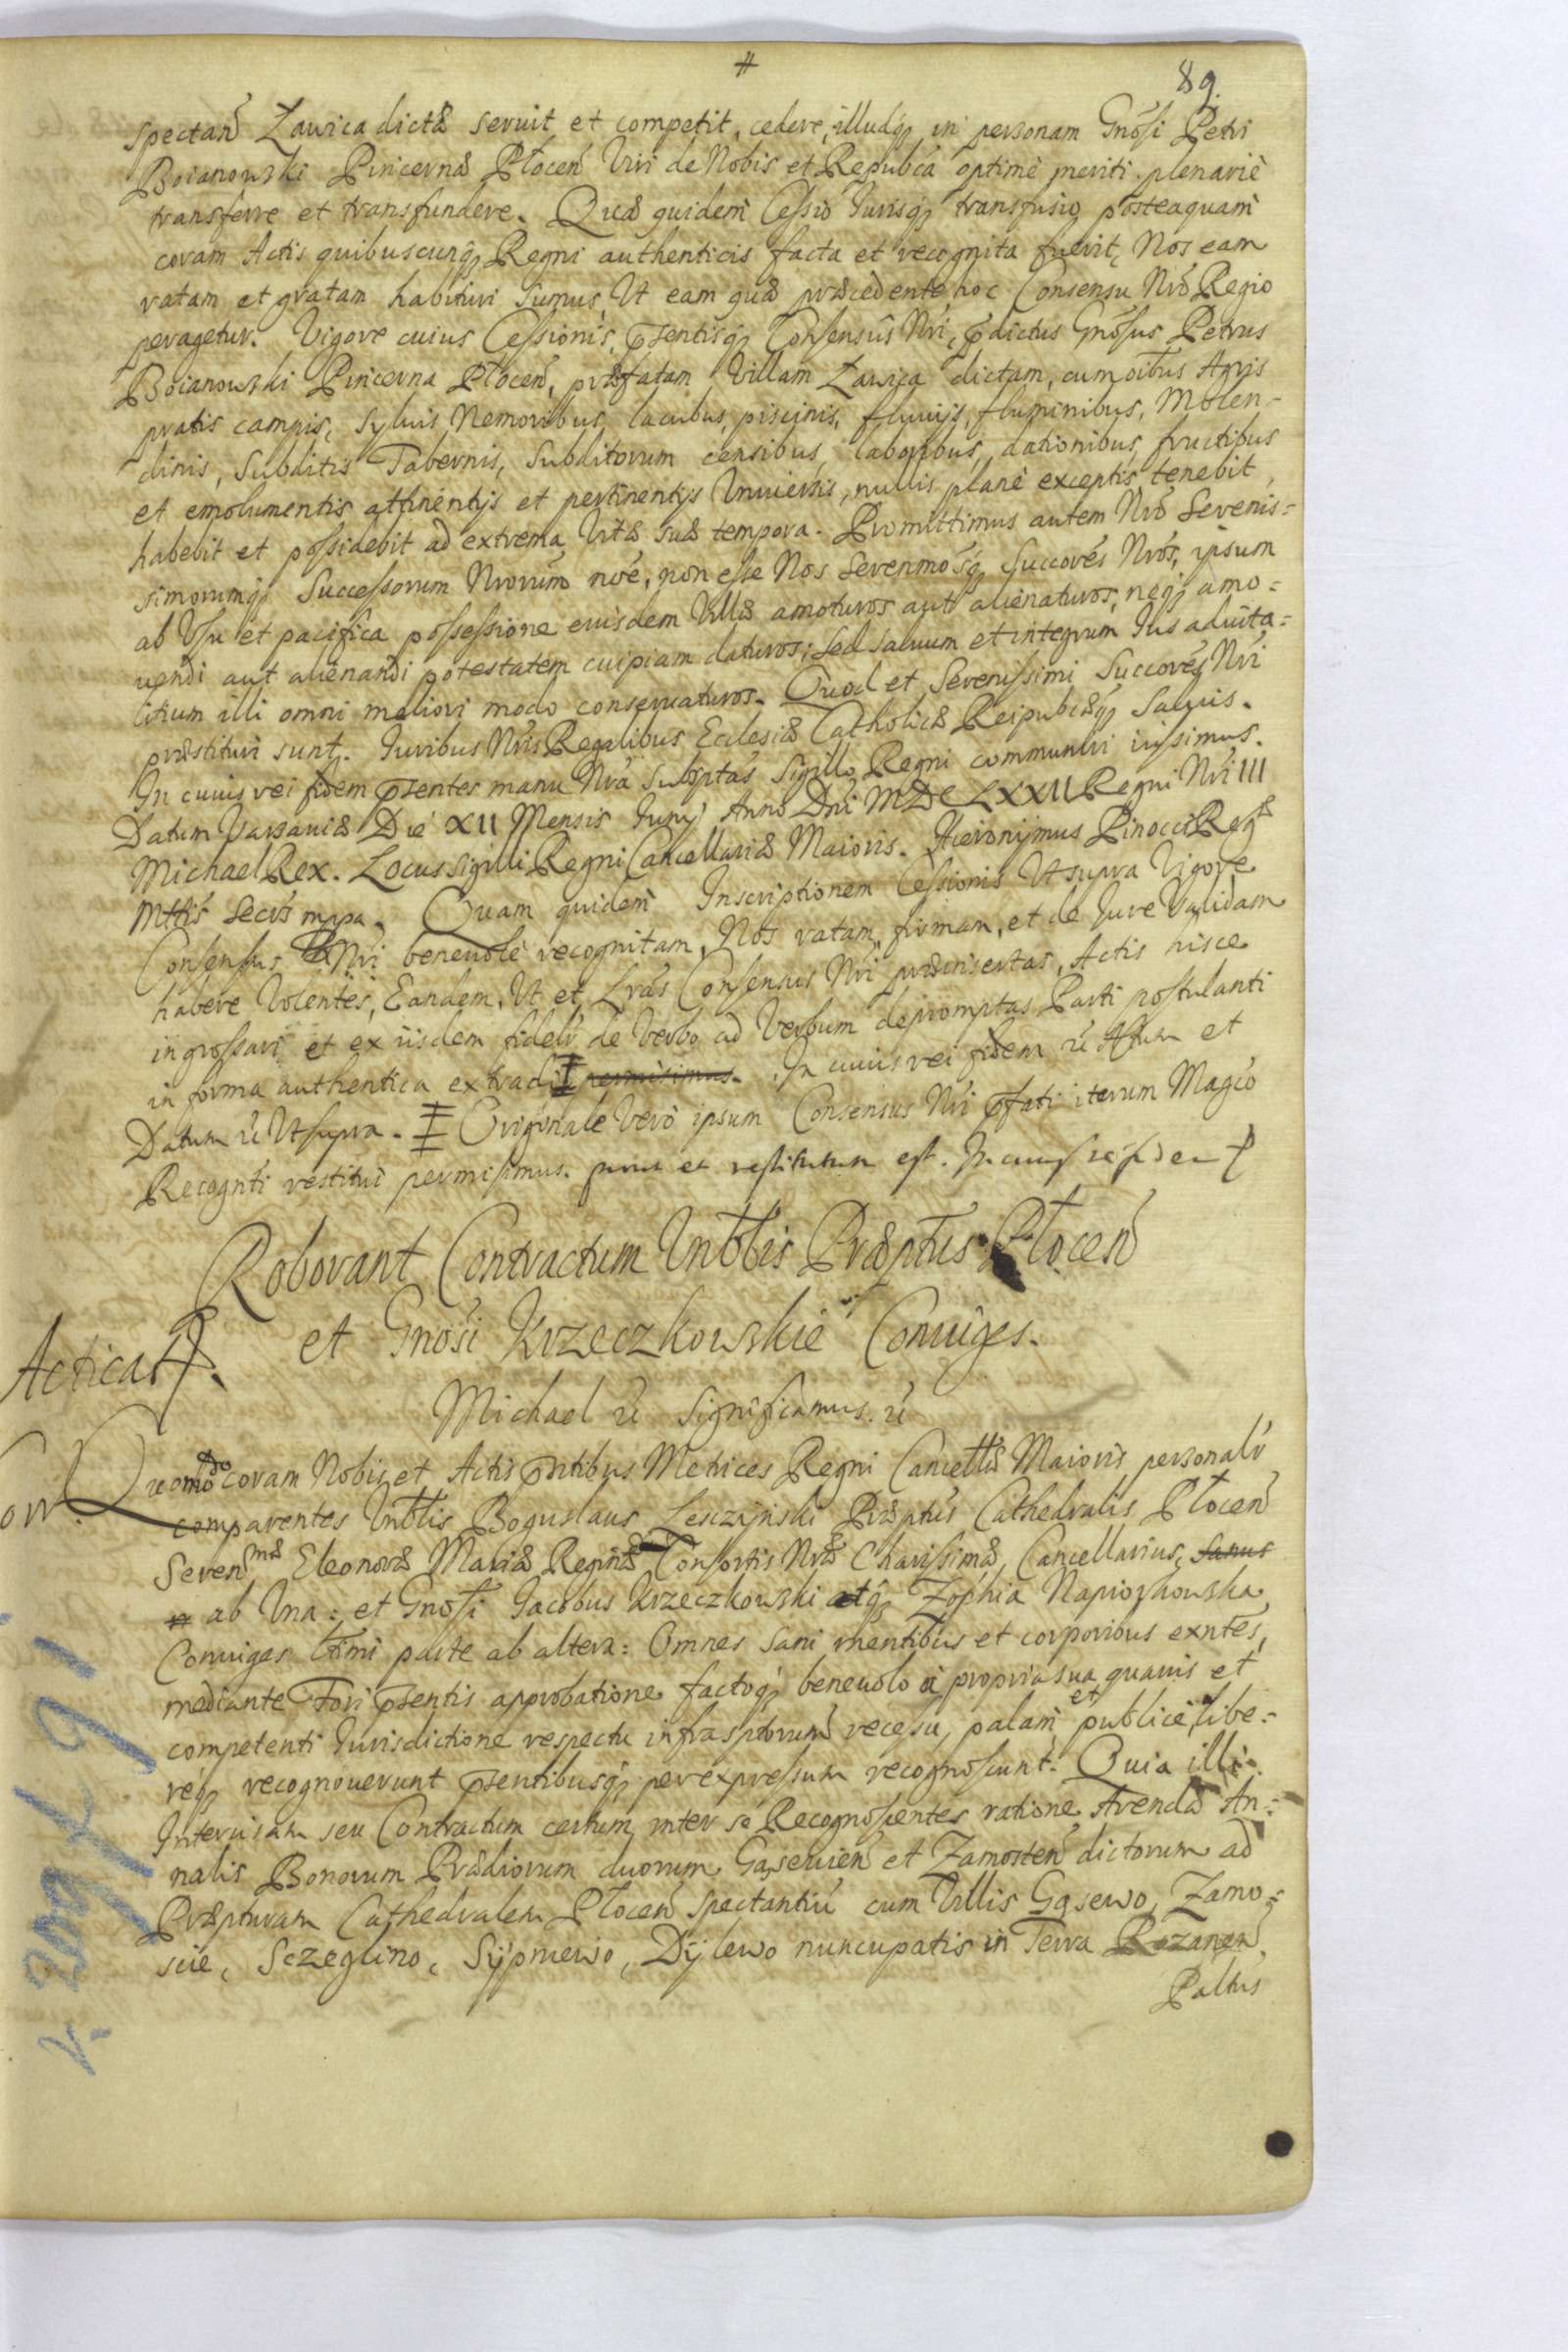 #
89.
spectan̄ Zawica dictæ seruit et competit, cedere, illudq; in personam Gnōsi Petri
Boianowski Pincernæ Płocen̄ Viri de Nobis et Republ̄ca optimè meriti plenariè
transferre et transfundere. Quæ quidem Cessio Jurisq; transfusio posteaquam
coram Actis quibuscunq; Regni authenticis facta et recognita fuerit, Nos eam
ratam et gratam habituri sumus, Ut eam quæ præcedente hoc Consensu Nr̄o Regio
peragetur. Vigore cuius Cessionis, p̄sentisq; Consensûs Nr̄i, p̄dictus Gnōsus Petrus
Boianowski Pincerna Płocen̄, præfatam Villam Zawica dictam, cum oībus Agris
pratis campis, syluis, Nemoribus, lacubus, piscinis, fluuijs, fluminibus, Molen-
dinis, Subditis Tabernis, Subditorum censibus, laboribus, dationibus, fructibus
et emolumentis attinentijs et pertinentijs Vniuersis, nullis planè exceptis tenebit,
habebit et possidebit ad extrema Vitæ suæ tempora. Promittimus autem Nr̄o Serenis=
simorumq; Successorum Nrorum nōe, non esse Nos Serenmōsq; Succorēs Nrōs, ipsum
ab Vsu et pacifica possessione eiusdem Villæ amoturos aut alienaturos, neq; amo=
uendi aut alienandi potestatem cuipiam daturos; Sed saluum et integrum Jus aduita=
litium illi omni meliori modo conseruaturos. Quod et Serenissimi Succorēs Nr̄i
præstituri sunt. Juribus Nr̄is Regalibus Ecclesiæ Catholicæ Reipubcæq; Saluis.
In cuius rei fidem p̄sentes manu Nrā Subsptās Sigillo Regni communiri iussimus.
Datum Varsauiæ Die XII Mensis Junij Anno Dnī MDCLXXII Regni Nr̄i III
Michael Rex. Locus sigilli Regni Cancellariæ Maioris. Hieronijmus Pinocci Regæ
Mttis Secrs mppa. Quam quidem Inscriptionem Cessionis Ut supra Vigore
Consensus Nr̄i beneuolè recognitam, Nos ratam, firmam, et de Jure Validam
habere Volentes, Eandem, Ut et Lrās Consensus Nr̄i præinsertas, Actis hisce
ingrossari et ex iisdem fideli de Verbo ad Verbum depromptas Parti postulanti
in forma authentica extradi permisimus. In cuius rei fidem rc̄ Actum et
Datum rc̄ Ut supra. Originale Verò ipsum Consensus Nr̄i p̄fati iterum Magco
Recognti restitui permisimus. prout et restitutum est. In cuius rei fidem
Roborant Contractum Vnblis Præptus Płocen̄
et Gnosi Krzeczkowskie Coniuges.
Acticat.
Michael rc̄ significamus rc̄
Quomodo coram Nobis et Actis p̄ntibus Metrices Regni Cancellæ Maioris personalr̄
comparentes Vnblis Boguslaus Lesczijnski Præptus Cathedralis Płocen̄
Serenmæ Eleonoræ Mariæ Reginæ Consortis Nræ Charissimæ, Cancellarius, sanus
ab Vna: et Gnosi Jacobus Krzeczkowski atq; Zophia Napiorkowska
Coniuges ltimi parte ab altera: Omnes sani mentibus et corporibus exntes,
mediante Fori p̄sentis approbatione factoq; beneuolo à propria sua quauis et
competenti Jurisdictione respectu infrasptorum recessu, palam et publicè, libe=
req; recognouerunt p̄sentibusq; per expressum recognoscunt. Quia illi
Intercisam seu Contractum certum inter se Recognoscentes ratione Arendæ An=
nalis Bonorum Prædiorum duorum Gąsewien̄ et Zamosten̄ dictorum ad
Præpturam Cathedralem Płocen̄ spectantiū cum Villis Gąsewo, Zamo=
scie, Sczeglino, Sijpniewo, Dijlewo nuncupatis in Terra Rozanen̄
Paltus